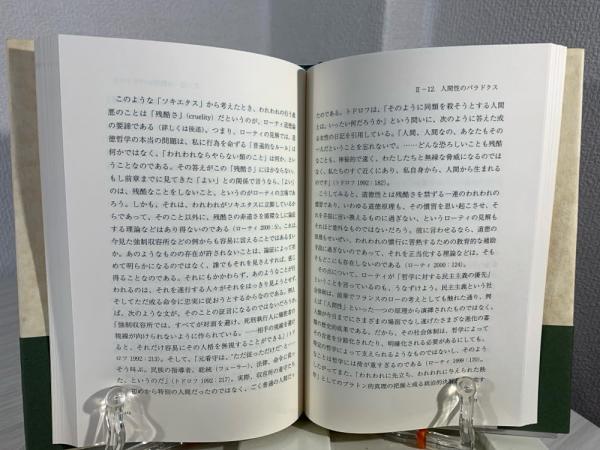 このような「ソキエタス」から考えたとき、われわれの行う最
悪のことは「残酷さ」(cruelty)だというのが、ローティ道徳論
の要諦である（詳しくは後述）。つまり、ローティの見解では、道
徳哲学の本当の問題は、私に行為を命ずる「普遍的なルール」は
何かではなく、「われわれならやらない類のこと」は何か、とい
うことなのである。その答えがこの「残酷さ」にほかならない。
もし前章までに見てきた「よい」との関係で言うなら、「よい」
のは、残酷なことをしないこと、というのがローティの立場であ
ろう。しかも、それは、われわれがソキエタスに立脚しているか
らであって、そのこと以外に、残酷さの非道さを循環なしに論証
する理論などはあり得ないのである（ローティ 2000 : 5）。これは、
今見た強制収容所などの例からも容易に言えることではあるま
いか。あのようなものの存在が許されないことは、論証によって初
めて明らかになるのではなく、誰でもそれを見さえすれば、感じ
取ることなのである。それにもかかわらず、あのようなことが行
われるのは、それを遂行する人々がそれをはっきり見ようとせず、
そしてただ或る命令に忠実に従おうとするからなのである。例え
ば、次のような文が、そのことの証言になるのではないだろうか。
「強制収容所では、すべてが対面を避け、死刑執行人に犠牲者の
視線が向けられないように作られている。
ると、それだけ容易にその人格を無視することができる」（トド
ロフ 1992 : 213）。そして、「元看守は、“ただ従っただけだ”
そう呼ぶ。民族の指導者、総統（フューラー）、法律、命令に従っ
た、というのだ」（トドロフ 1992 : 217）。実際、収容所の看守たち
初めから特別の人間だったのではなく、ごく普通の人間だっ
Ⅱ－12. 人間性のパラドクス
たのである。トドロフは、「そのように同類を殺そうとする人間
とは、いったい何だろうか」という問いに、次のように答えた或
る女性の日記を引用している。「人間、人間なの、あなたもその
一人だということを忘れないで。……どんな恐ろしいことも残酷
なことも、神秘的で遠く、わたしたちと無縁な脅威になるのでは
なく、私たちのすぐ近くにあり、私自身から、人間から生まれる
のです」（トドロフ 1992 : 182）。
このように、道徳性とは残酷さを禁ずる一連のわれわれの
慣習であり、いわゆる道徳原理も、その慣習を思い起こさせ、そ
れを手短に言い換えるものに過ぎない、というローティの見解も
それほど意外なものではないだろう。彼に言わせるなら、道徳の
原理もせいぜい、われわれの慣行に習熟するための教育的な補助
手段に過ぎないのであって、それを正当化する理論などは、そも
そもどこにも存在しないのである（ローティ 2000 : 124）。
その点について、ローティが「哲学に対する民主主義の優先」
ということを言っているのも、うなずけよう。民主主義という社
会体制は、
えば「人間性」といった一つの原理から演繹されたものではなく、
人類が今日までにさまざまの場面でなし遂げたさまざまな進化の蓄
積、歴史的成果である。だから、その社会体制は、哲学によって
内容を分節化されたり、明確化される必要があるにしても、
哲学によって支えられるようなものではないし、そのよう
なことは哲学には荷が重すぎるのである（ローティ
したがってまた、「われわれに先立ち、われわれに与えられた秩
序」としてのプラトン的真理の把握と或る政治的決